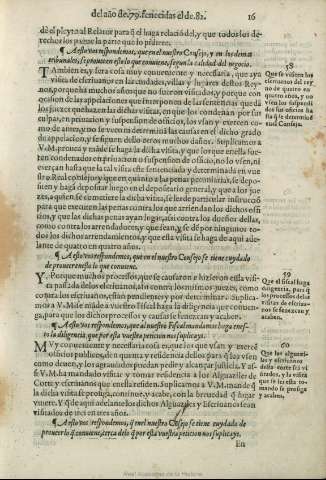 del año de.79. fenecidas el de.82. 16
dé el pleyto al Relator para q̃ el haga relació del, y que todos los de
rechos los pague la parte que lo pidiere.
¶ A esto vos respondemos, que en el nuestro Consejo, y en los demas
tribunales, se prouee en esto lo que conuiene, segun la calidad del negocio.
Tambien es, y sera cosa muy conueniente y necessaria, que aya
visita de escriuanos en las ciudades, villas y lugares destos Rey
nos, por que ha mucho tiempo que no se visitan, y tambien porque con
ocasion de las appelaciones que interponen de las sentencias que dá
los juezes que han ydo a la dicha visita, en que los condenan por sus
culpas, en priuacion y suspension de officios, los vsan y exercen co
mo de antes, y no se veen ni determina las causas en el dicho grado
de appelacion, y se figuren dello otros muchos daños. Suplicamos a
V. M. prouea y máde se haga la dicha visita, y que los que enella fue-
ren condenados en priuacion o suspension de officio, no lo vsen, ni
exerçan hasta que la tal visita este sentenciada y determinada en vue
stro Real consejo: y que en quanto a las penas pecuniarias, se depo-
siten y haga depositar luego en el depositario general, y que los jue
zes, a quien se comete la dicha visita, se le de particular instrucció
para que executen las penas contra los que arriendan los dichos offi
cios, y que las dichas penas ayan lugar, assi contra los dueños dellas,
como contra los arrendadores, y que sean, y se dé por ningunos to-
dos los dichos arrendamientos, y que esta visita se haga de aqui ade-
lante de quatro en quatro años.
¶ A esto vos respondemos, que en el nuestro Consejo se tiene cuydado
de proueer en esto lo que conuiene.
Y Porque muchos processos, que se causaron e hizieron en la visi-
ta passada de los escriuanos, assi contra los mismos juezes, como
contra los escriuanos, están pendientes y por determinar. Suplica-
mos a V. M. se máde a vuestro Fiscal haga la diligencia que conuen-
ga, para que los dichos processos y causas se fenezcan y acaben.
¶ A esto vos respondemos, que al nuestro Fiscal mandamos haga cerca
lo la diligencia, que por esta vuestra peticion nos suplicays.
MVy conueniente y necessaria cosa es, que los que vsan y exercé
officios publicos, den quenta y residencia dellos para q̃ los vsen
como deuen, y los agrauiados puedan pedir y alcançar justicia. Y as-
si V. M. ha mandado visitar y tomar residencia a los Alguaziles de
Corte y escriuanos que enella residen. Suplicamos a V. M. mande q̃
la dicha visita se prosiga, continue, y acabe, con la breuedad que hu-
uiere. Y que de aqui adelante los dichos Alguaziles y Escriuanos sean
visitados de tres en tres años.
¶ A esto vos respondemos, q̃ enel nuestro Consejo se tiene cuydado de
proueer lo q̃ conuiene, cerca delo q̃ por esta vuestra peticion nos suplicays.
En
58
Que se visiten los
escriuanos del rey
no de quatro
en quatro años, y q̃
no vsen los suspendi
dos sus officios ha
sta q̃ se determine
enel Consejo.
59
Que el fiscal haga
diligencia, para q̃
los processos dela
visitas de escriua-
nos se fenezcan y
acaben.
60
Que los alguazi-
les y escriuanos
desta corte seã vi
sitados, y la visita
que se les esta to-
mando se prosiga
y acabe.
Real Academia de la Historia